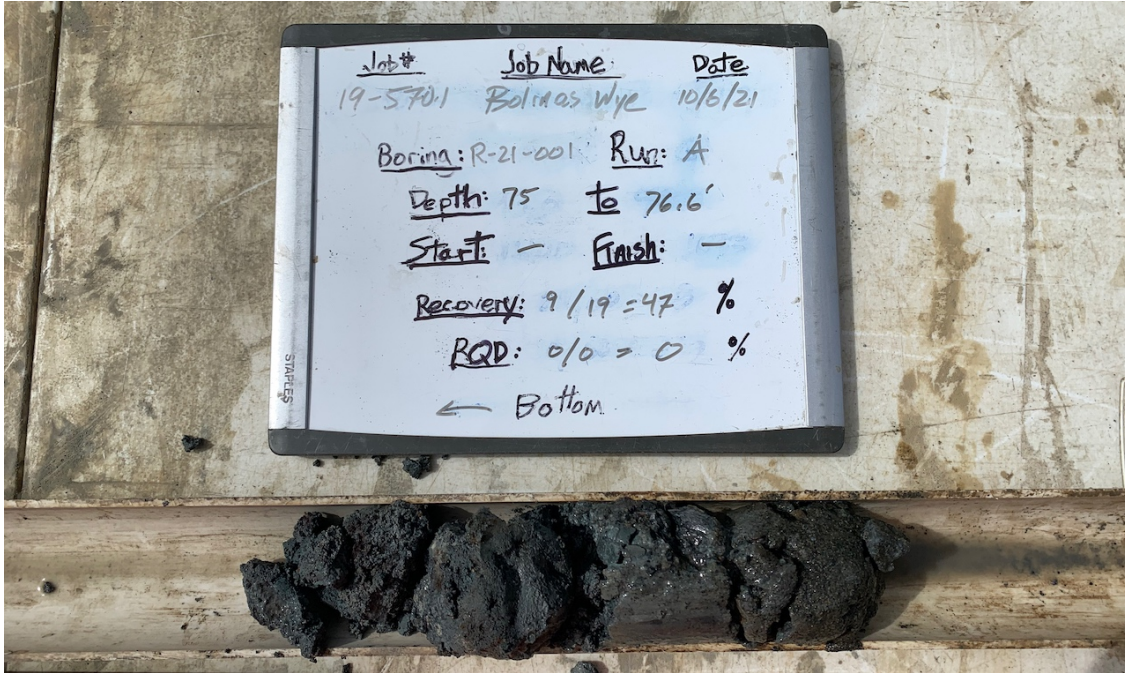 Job# Job Name Date
19-570.1 Bolinas Wye 10/6/21
Boring: R-21-001 Run: A
Depth: 75 to 76.6'
Start: — Finish: —
Recovery: 9/19 = 47 %
RQD: 0/0 = 0 %
← Bottom
STAPLES